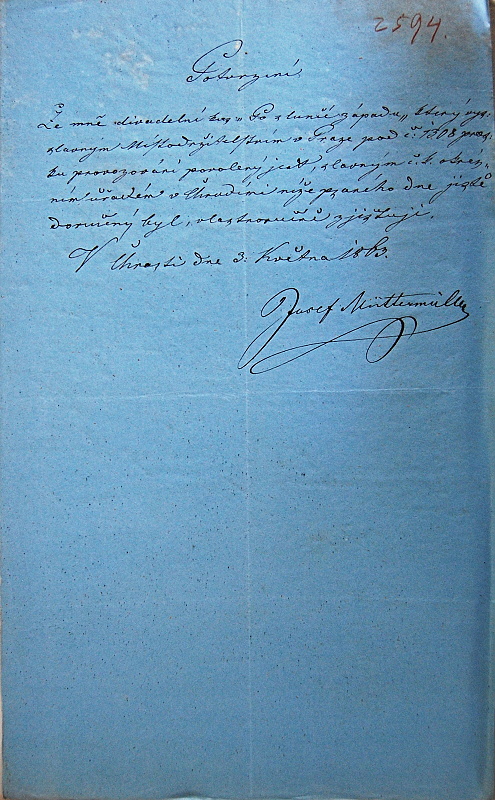 2594.
Potvrzení.
Že mně divadelní kus „Po slunce západu„ který vys.
slavným Místodržitelstvím v Praze pod č. 1808 prov.
ku provozování povolený jest, slavným c. k. okres-
ním úřadem v Chrudimi níže psaného dne jistě
doručený byl, vlastnoručně zjistuji.
V Chrasti dne 3. Května 1863.
Josef Müttermüller